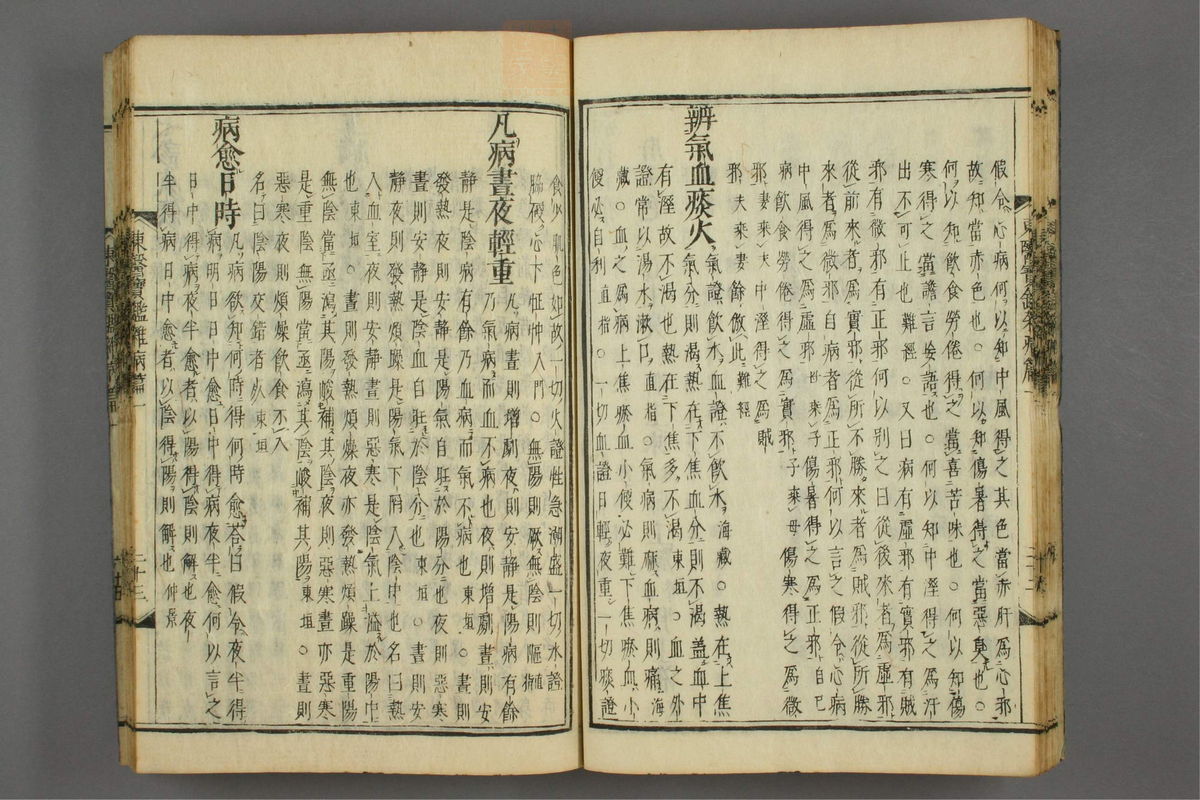 假令心病何以知中風得之其色當赤肝爲心邪
故知當赤色也○何以知傷暑得之當惡臭也○
何以知飲食勞倦得之當喜苦味也○何以知傷
寒得之當譫言妄語也○何以知中溼得之爲汗
出不可止也難經○又曰病有虛邪有實邪有賊
邪有微邪有正邪何以別之曰從後來者爲虛邪
從前來者爲實邪從所不勝來者爲賊邪從所勝
來者爲微邪自病者爲正邪何以言之假令心病
中風得之爲虛邪傷暑得之爲正邪
病飲食勞倦得之爲實邪子乘母傷寒得之爲微
邪妻來乘夫中溼得之爲賊
邪夫乘妻餘倣此難經
辨氣血痰火氣證飮水血證不飮水海藏○熱在上焦
氣分則渴熱在下焦血分則不渴盖血中
有溼故不渴也熱在下焦多不渴東垣○血之外
證常以湯水漱口直指○氣病則麻血病則痛海
藏○血之爲病上焦瘀血小便必難下焦瘀血小
便必自利直指○一切血證日輕夜重一切痰證
食少肌色如故一切火證性急潮盛一切水證
脇硬心下怔忡入門○無陽則厥無陰則嘔
凡病晝夜輕重凡病晝則增劇夜則安靜是陽病有餘
乃氣病而血不病也夜則增劇晝則安
靜是陰病有餘乃血病而氣不病也東垣○晝則
發熱夜則安靜是陽氣自旺於陽分也夜則惡寒
晝則安靜是陰血自旺於陰分也東垣○晝則安
靜夜則發熱煩躁是陽氣下陷入陰中也名曰熱
入血室夜則安靜晝則惡寒是陰氣上溢於陽中
也東垣○晝則發熱煩躁夜亦發熱煩躁是重陽
無陰當亟瀉其陽峻補其陰夜則惡寒晝亦惡寒
是重陰無陽當亟瀉其陰峻補其陽東垣○晝則
惡寒夜則煩燥飮食不入
名曰陰陽交錯者死東垣
病愈日時凡病欲知何時得何時愈荅曰假令夜半得
病明日日中愈日中得病夜半愈何以言之
日中得病夜半愈者以陽得陰則解也夜
半得病日中愈者以陰得陽則解也仲景
東醫寶鑑雜病篇一
二十三
東醫寶鑑雜病篇一
二十二